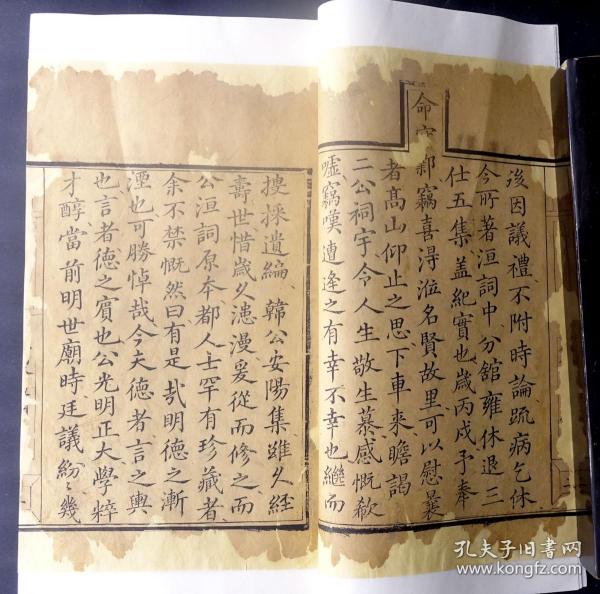 後因議禮不附時論疏病乞休
今所著洹詞中分舘雍休退三
仕五集盖紀實也歲丙戌予奉
命守鄴竊喜得涖名賢故里可以慰曩
者高山仰止之思下車來瞻謁
二公祠宇令人生敬生慕感慨欷
嘘竊嘆遭逢之有幸不幸也繼而
搜採遺編韓公安陽集雖久經
壽世惜歲久漶漫爰從而修之而
公洹詞原本都人士罕有珍藏者
余不禁慨然曰有是哉明德之漸
湮也可勝悼哉今夫德者言之輿
也言者德之賓也公光明正大學粹
才醇當前明世廟時廷議紛〻幾
孔夫子旧书网
www.kongfz.com